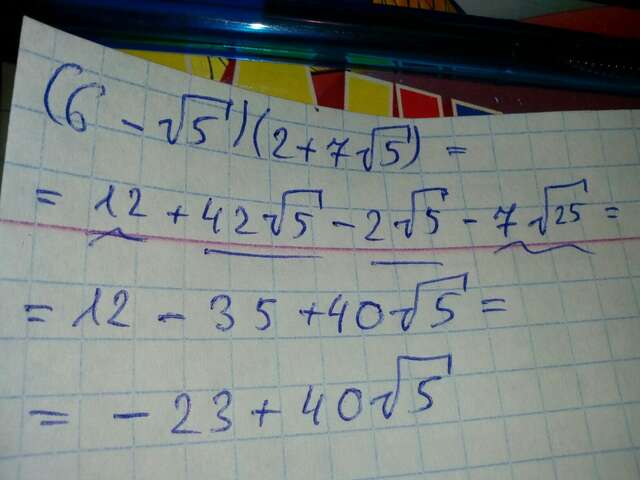 (6 - √5)(2+7√5) =
= 12 + 42√5 - 2√5 - 7√25 =
= 12 - 35 + 40√5 =
= - 23 + 40√5